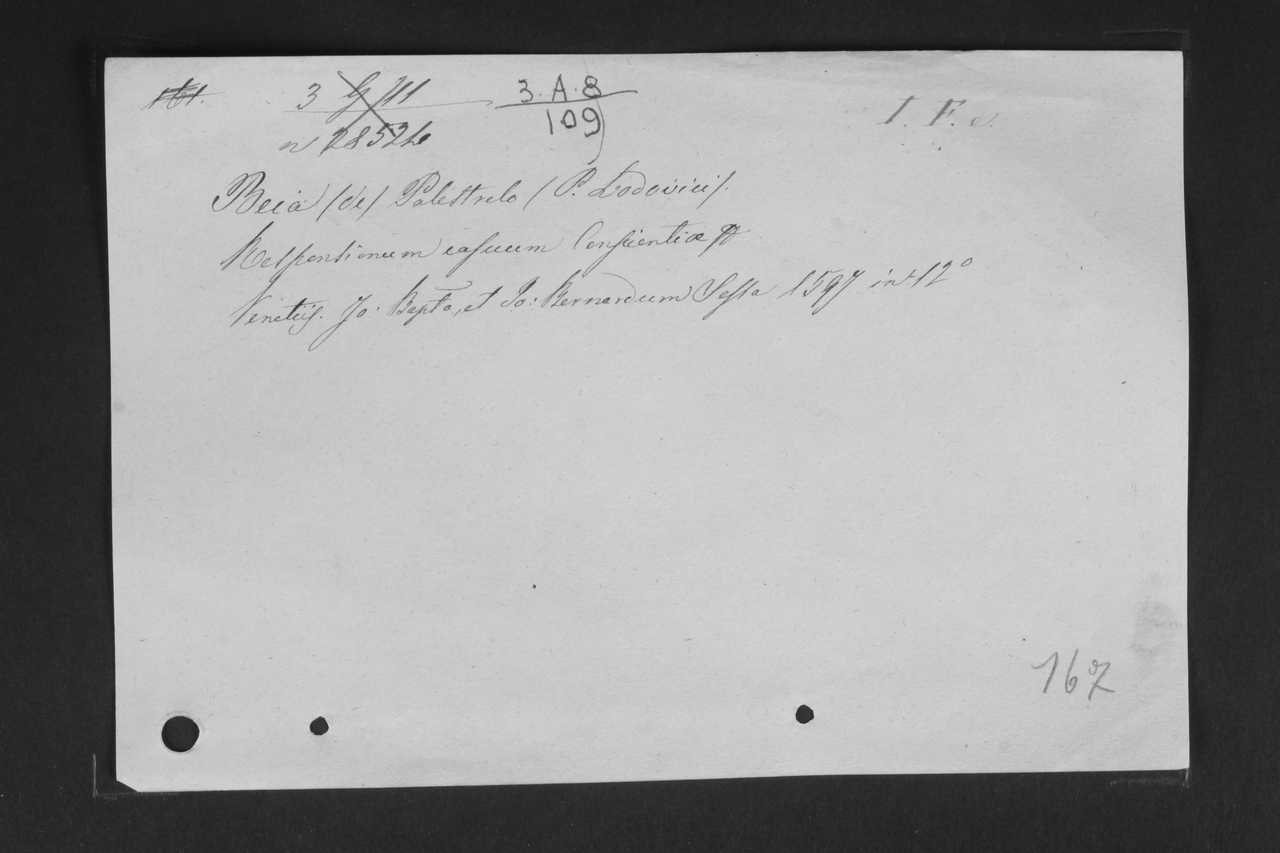 161.
3 G 111
n 28524
3.A.8
109
I. F. c.
Beia (de) Palestrelo (P. Lodovici).
Responsionum casuum Conscientiæ
Venetiis. Jo. Bapta, et Jo: Bernardum Sessa 1597 in 12°
167